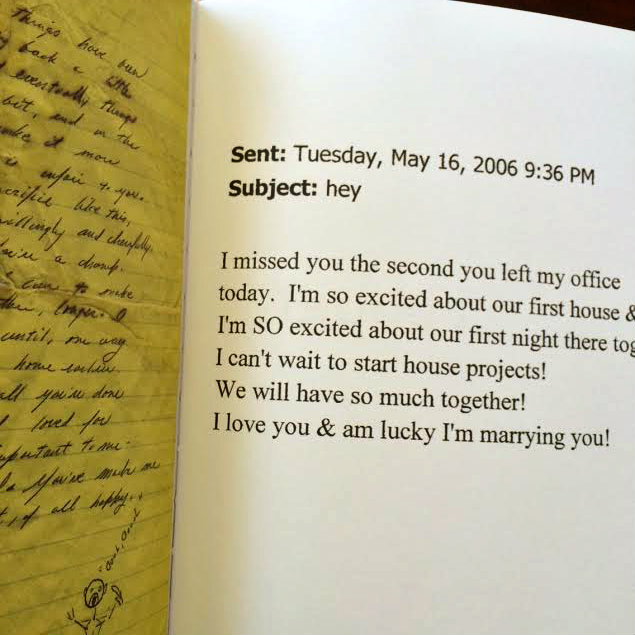 Things have been
back a little
eventually things
bit, and in the
make it more
is unfair to you.
sacrifice like this,
willingly and cheerfully.
you're a champ.
to make
longer. I
until, one way
home
all you've done
loved for
important to me.
You've made me
of all happy.
Sent: Tuesday, May 16, 2006 9:36 PM
Subject: hey
I missed you the second you left my office
today. I'm so excited about our first house &
I'm SO excited about our first night there tog
I can't wait to start house projects!
We will have so much together!
I love you & am lucky I'm marrying you!